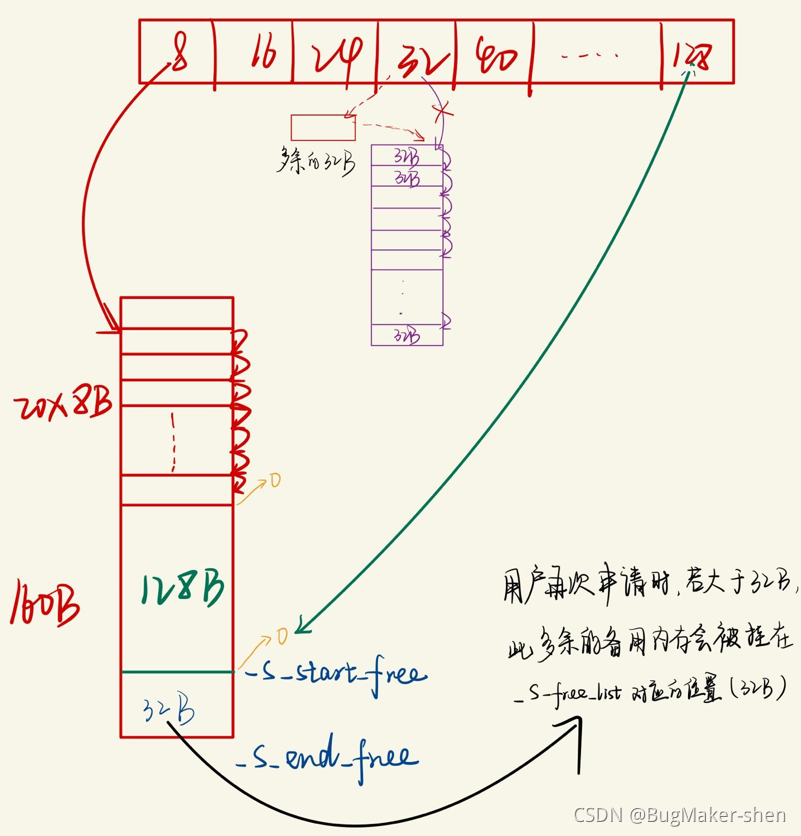 8 16 24 32 40 ..... 128
多余的32B
32B
32B
32B
20×8B
0
160B
128B
0
_S_start_free
32B
_S_end_free
用户再次申请时,若大于32B,
此多余的备用内存会被挂在
_S_free_list 对应的位置(32B)
CSDN @BugMaker-shen